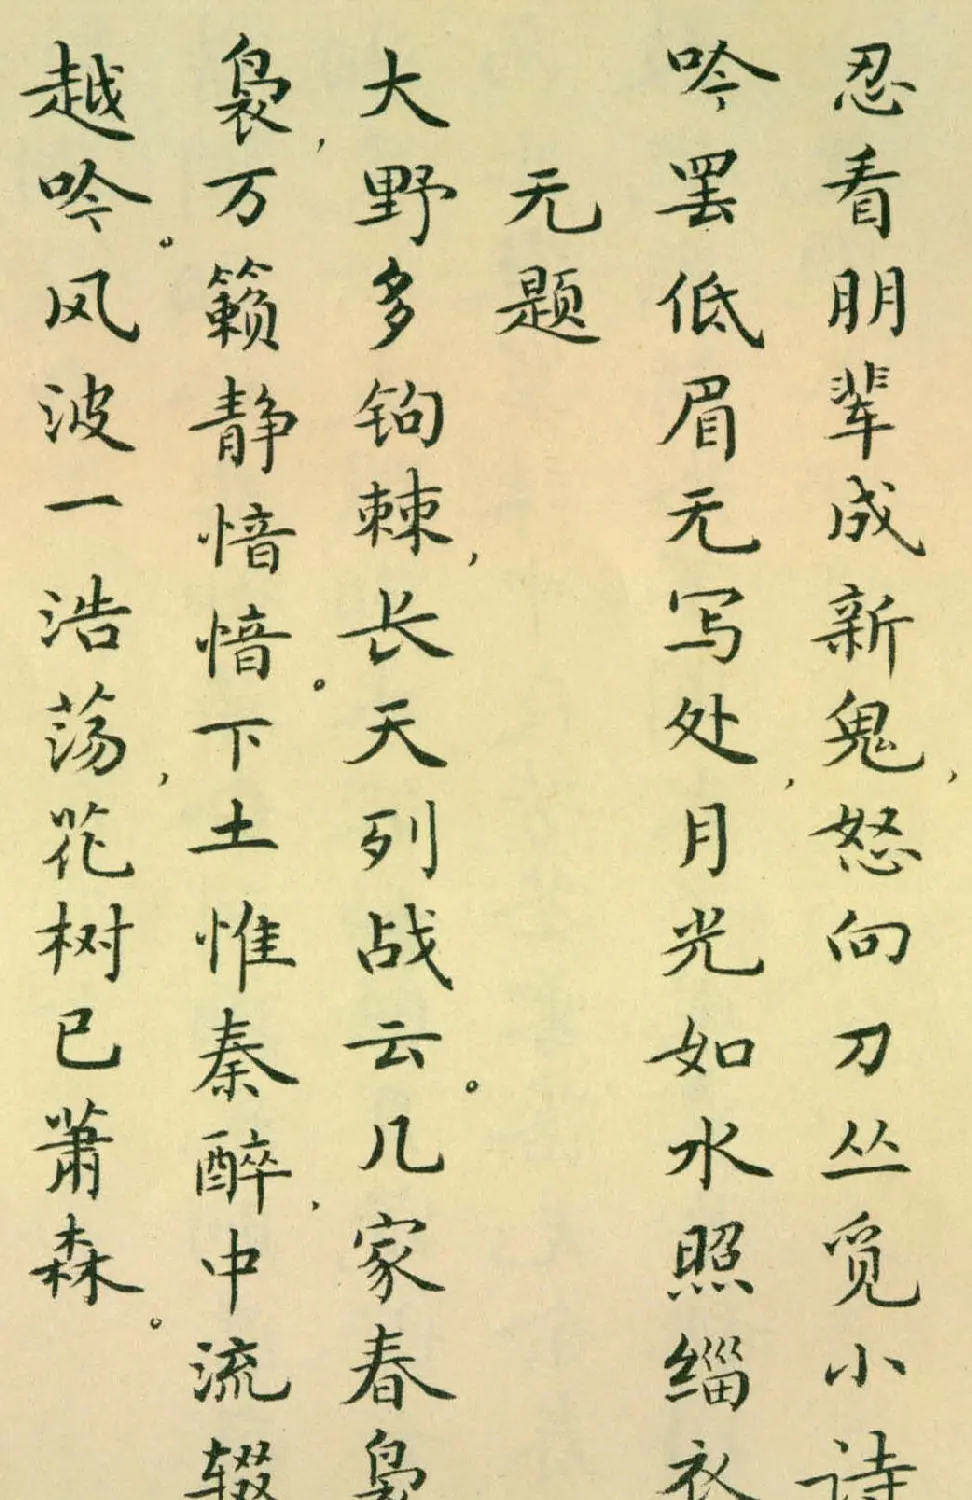 忍看朋辈成新鬼，怒向刀丛觅小诗
吟罢低眉无写处，月光如水照缁衣
无题
大野多钩棘，长天列战云。几家春袅
袅，万籁静愔愔。下土惟秦醉，中流辍
越吟。风波一浩荡，花树已萧森。